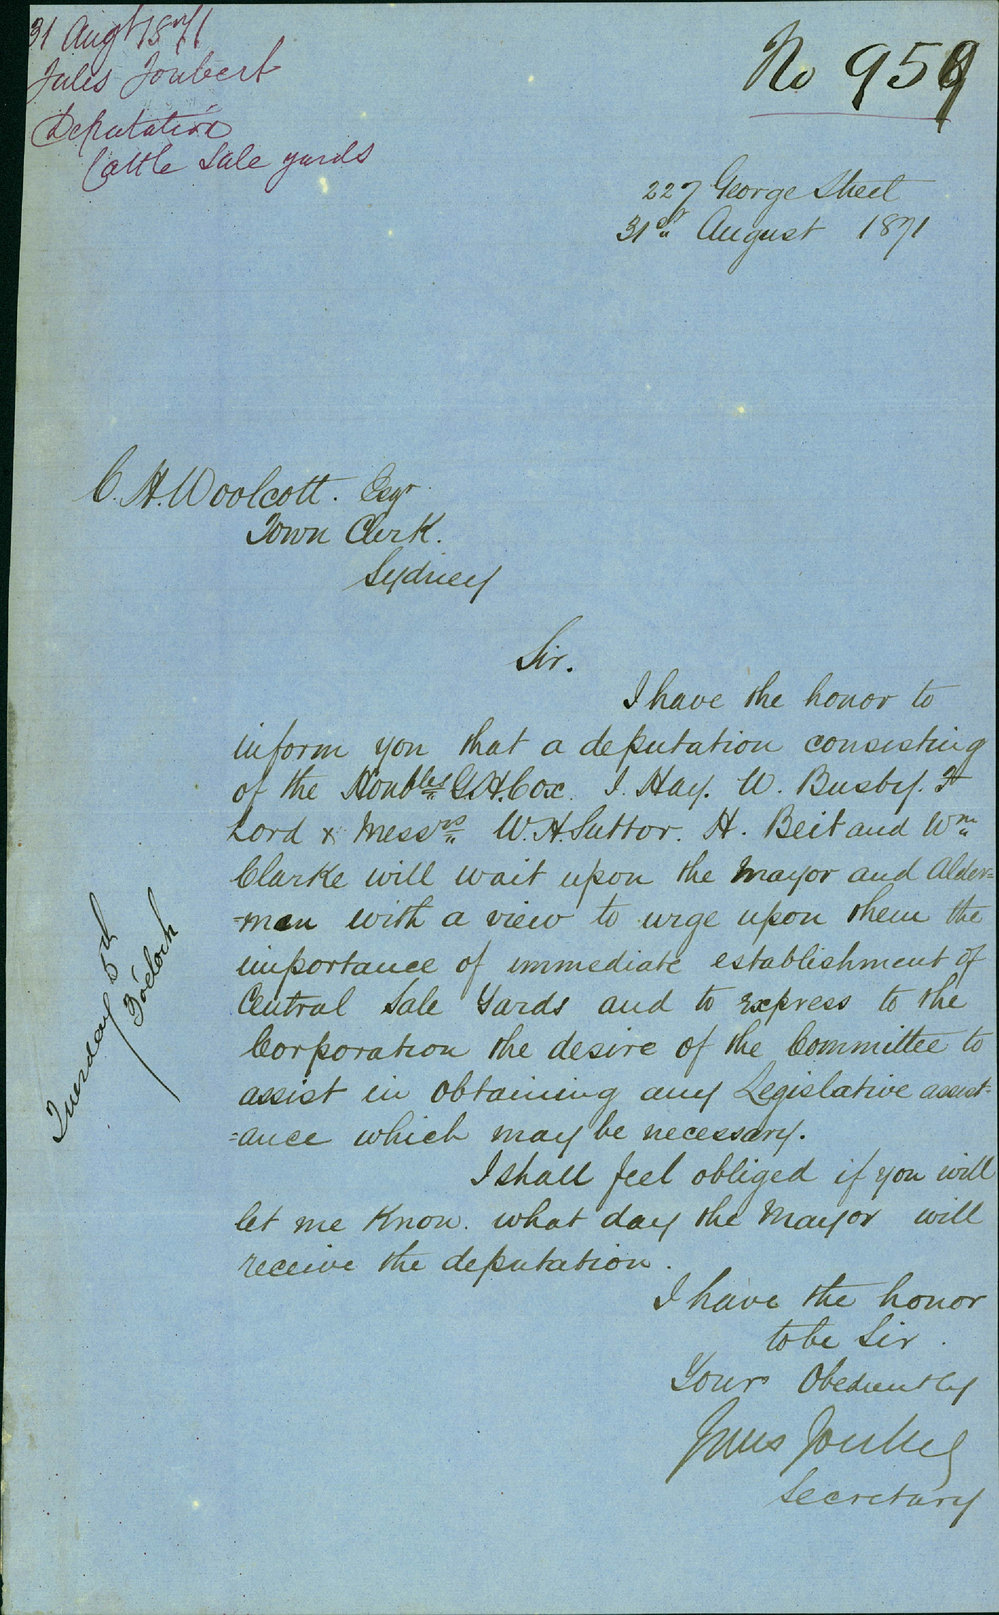 31 Augt 1871
Jules Joubert
Deputation
Cattle Sale yards
No 959
227 George Street
31st August 1871
C. H. Woolcott. Esqr.
Town Clerk.
Sydney
Sir.
I have the honor to
inform you that a deputation consisting
of the Honbles G.H. Cox. J. Hay. W. Busby. F
Lord & Messrs W. H. Suttor. H. Beit and Wm
Clarke will wait upon the Mayor and Alder=
=men with a view to urge upon them the
importance of immediate establishment of
Central Sale Yards and to express to the
Corporation the desire of the Committee to
assist in obtaining any Legislative assist-
=ance which may be necessary.
I shall feel obliged if you will
let me know. what day the Mayor will
receive the deputation.
I have the honor
to be Sir.
Yours Obediently
Jules Joubert
Secretary
Tuesday 5th
3 o'clock